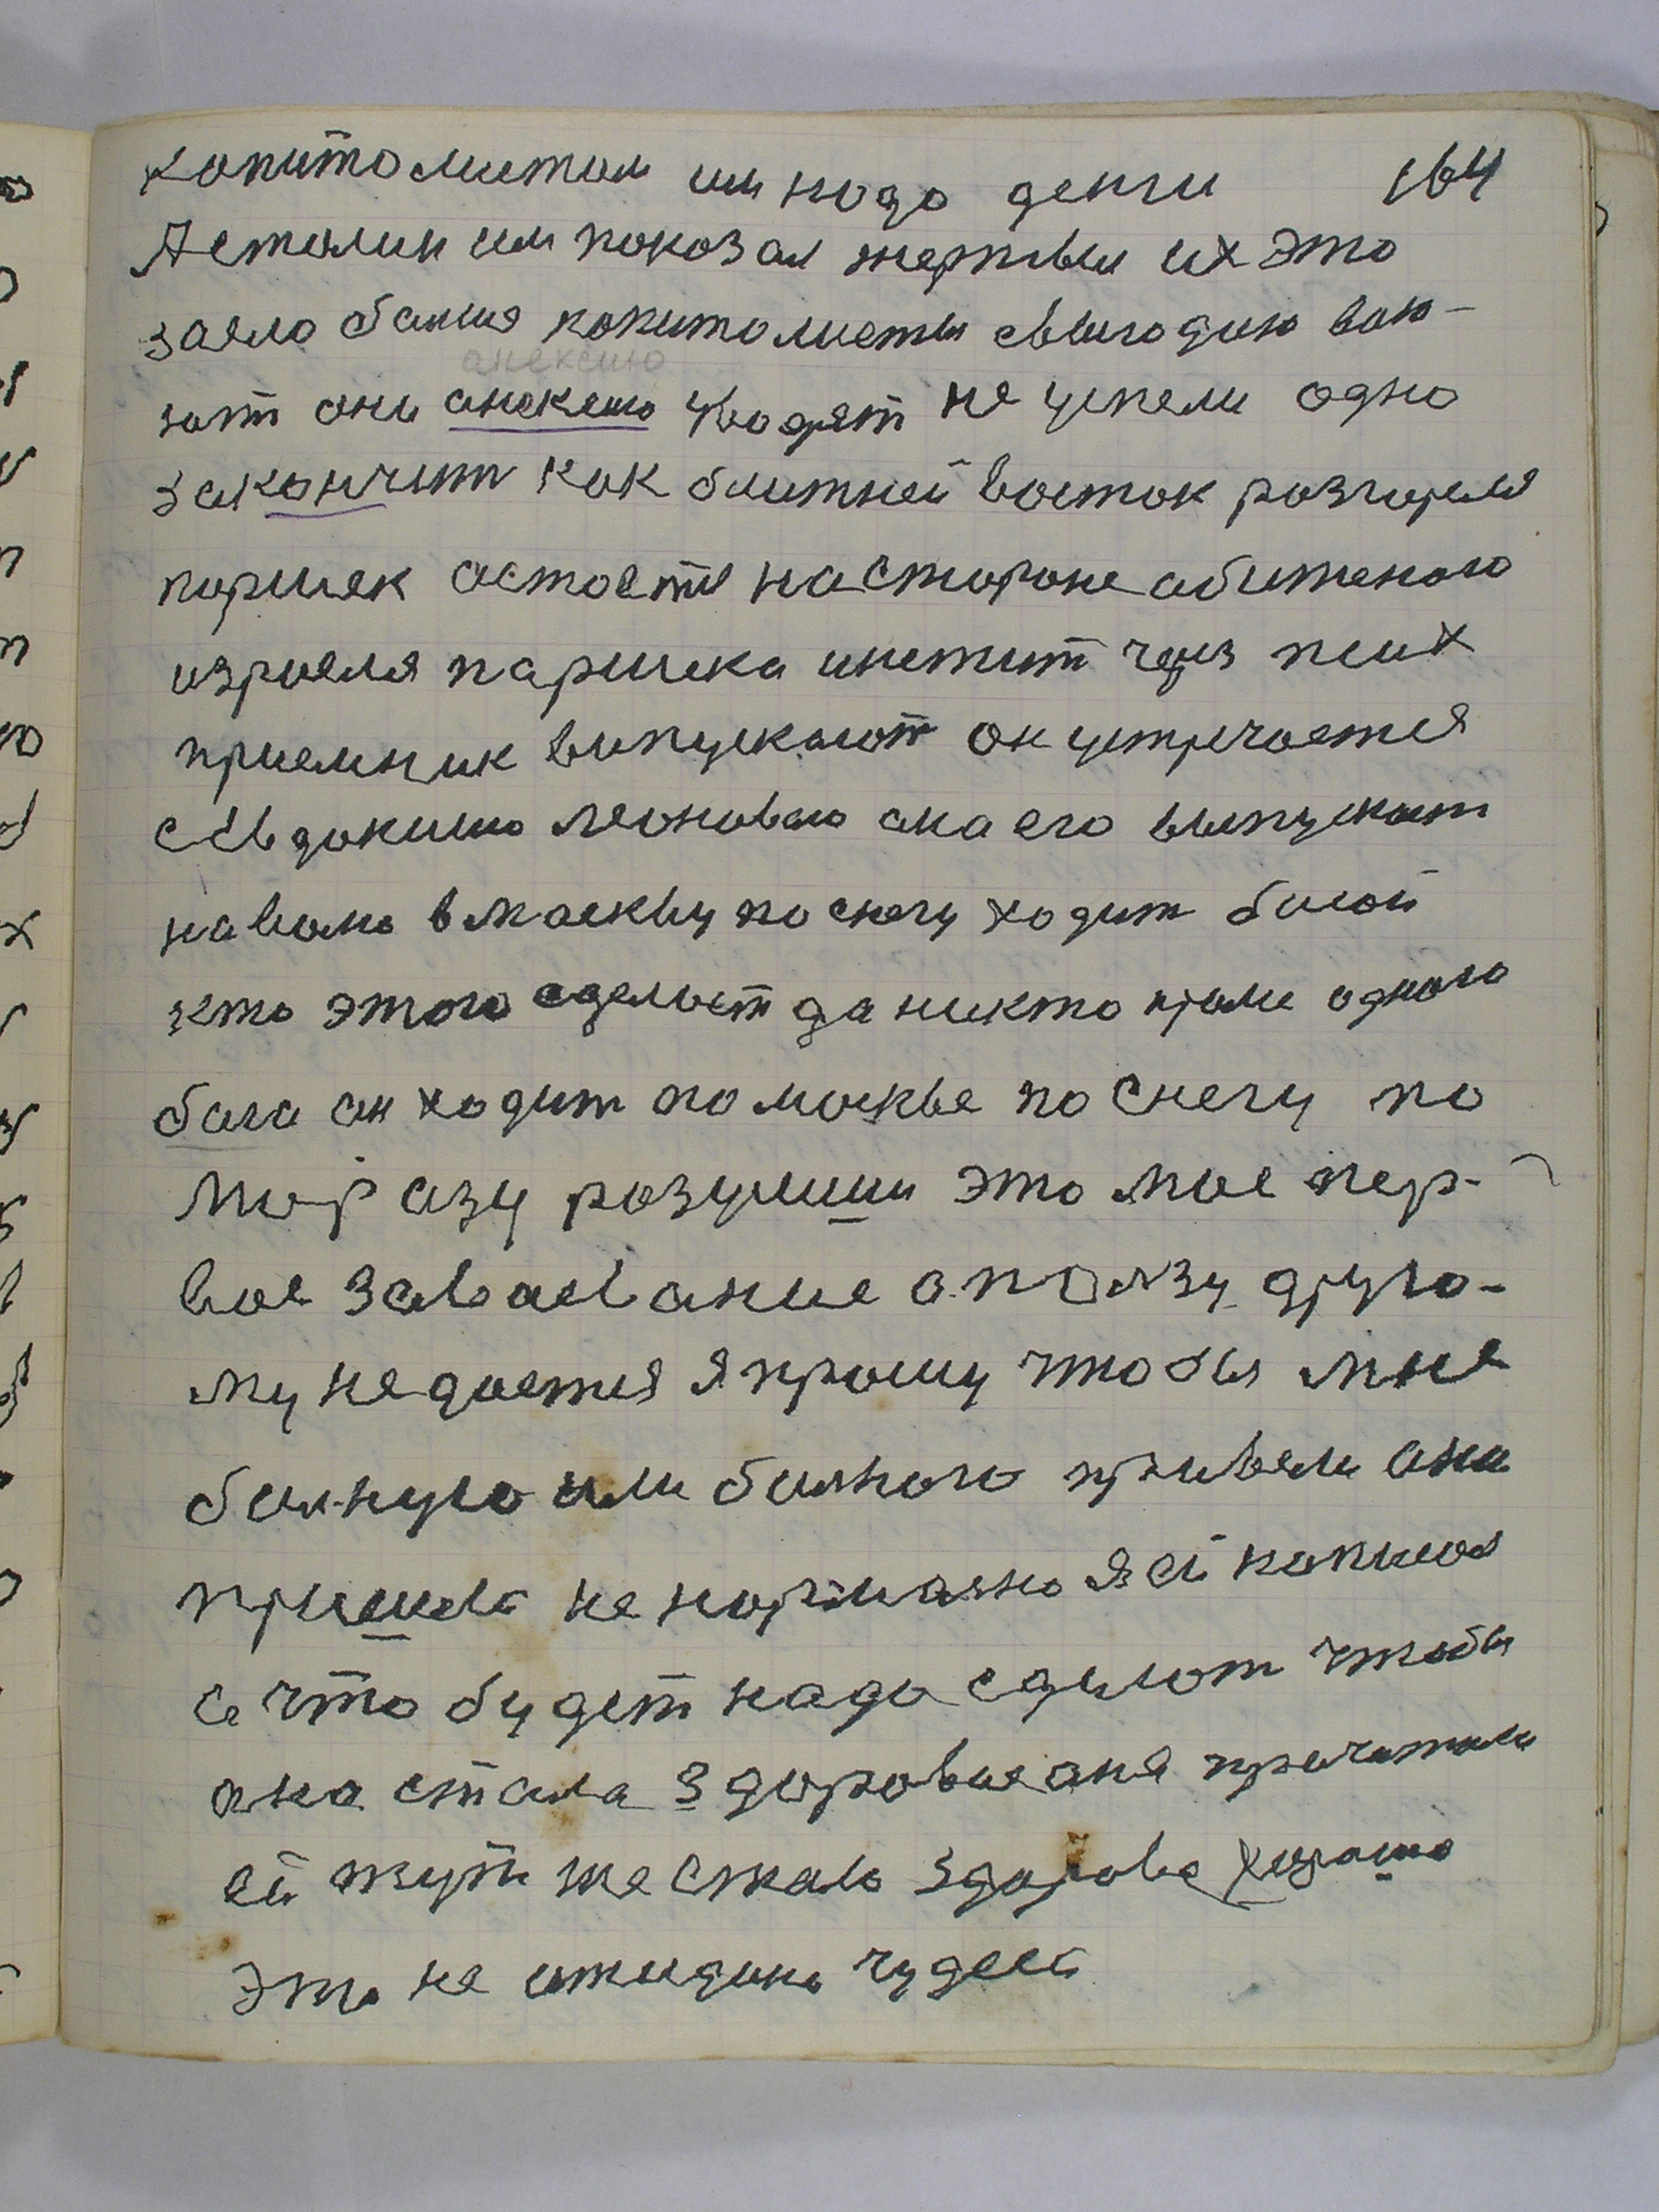 копитолистам им надо денги 164
Асталин им показал жертвы их это
заело балшия копитолисты свыгодаю вою-
анексию
ют они анексию уводят не успели одно
закончит как ближней восток розгорелся
поршек астоется на стороне абиженого
изроеля паршека инстит через псих
приемник выпускают он устречается
с Евдокимо леоновою она его выпускает
на волю в Маскву по снегу ходит босой
кто этого сделает да никто кроме одного
бога он ходит по маскве по снегу по
Морозу розумиш это мое пер-
вое завоевание о ползу друго-
му не дается я прошу чтобы мне
болную или болного привели она
пришла не нормално я ей напишов
е что будет надо сделат чтобы
она стала здоровые оня прачитала
ей тут же стало здорово хорошо
Это не ожидано чудеса